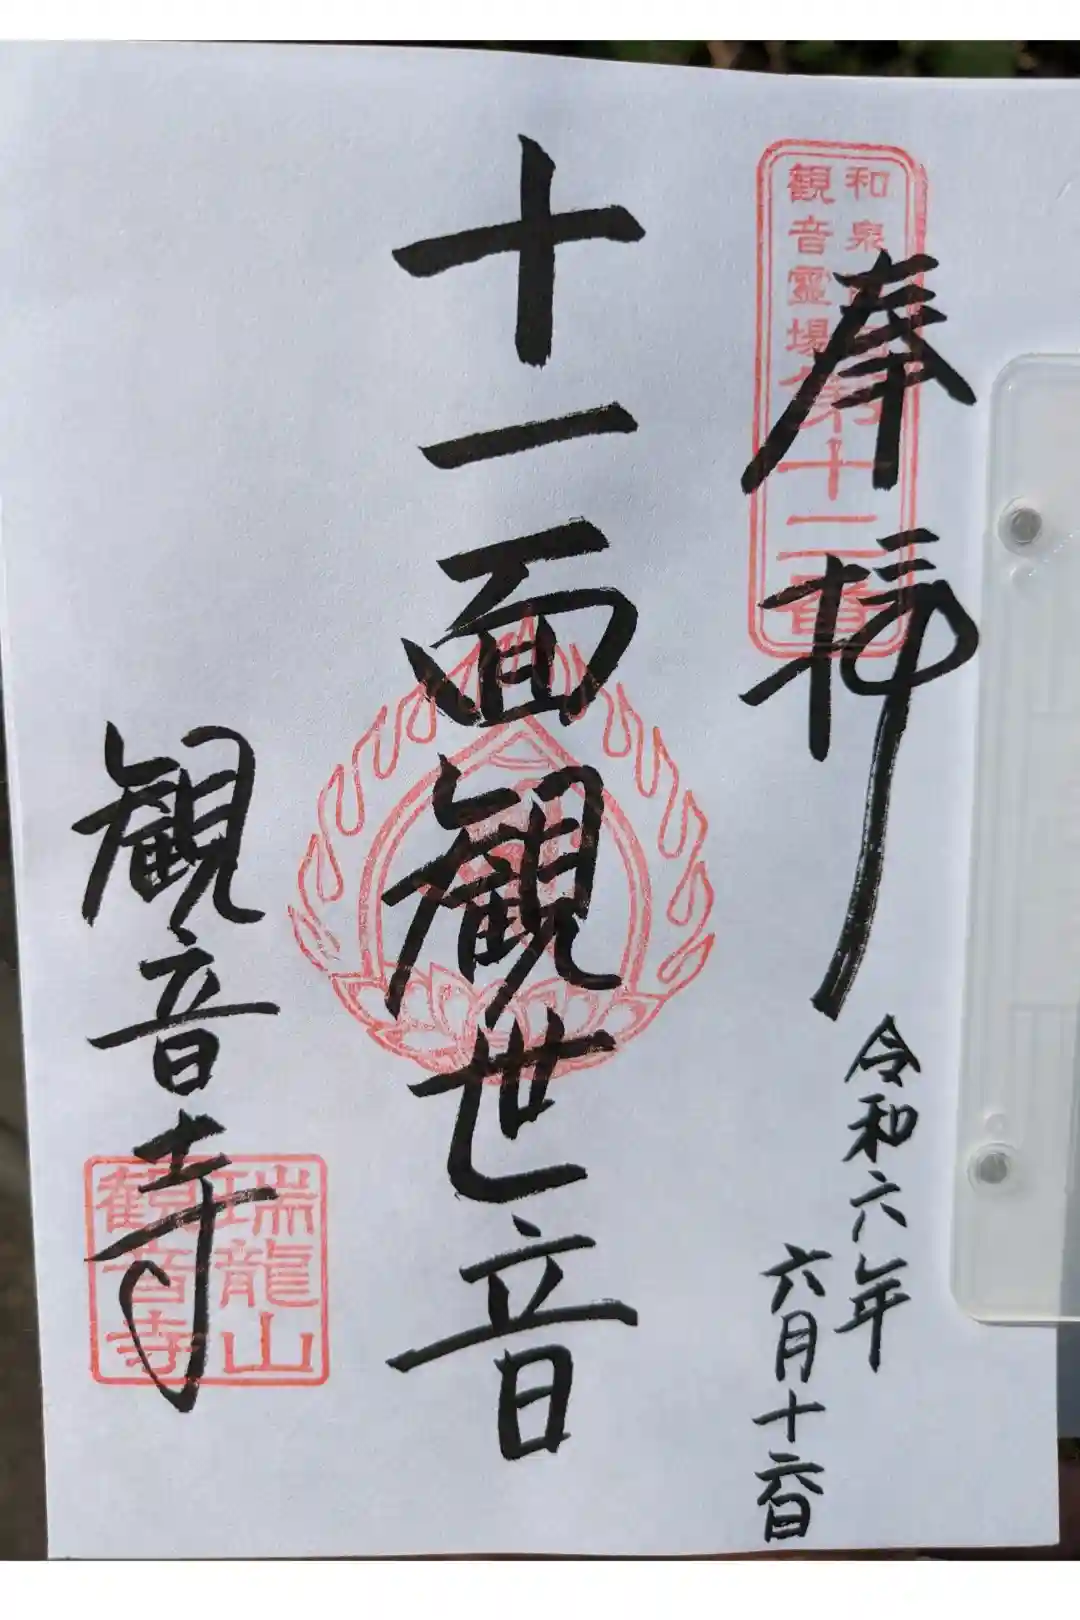 奉拝
和泉
観音霊場
第十二番
令和六年
六月十六日
十一面観世音
観音寺
瑞龍山
觀音寺